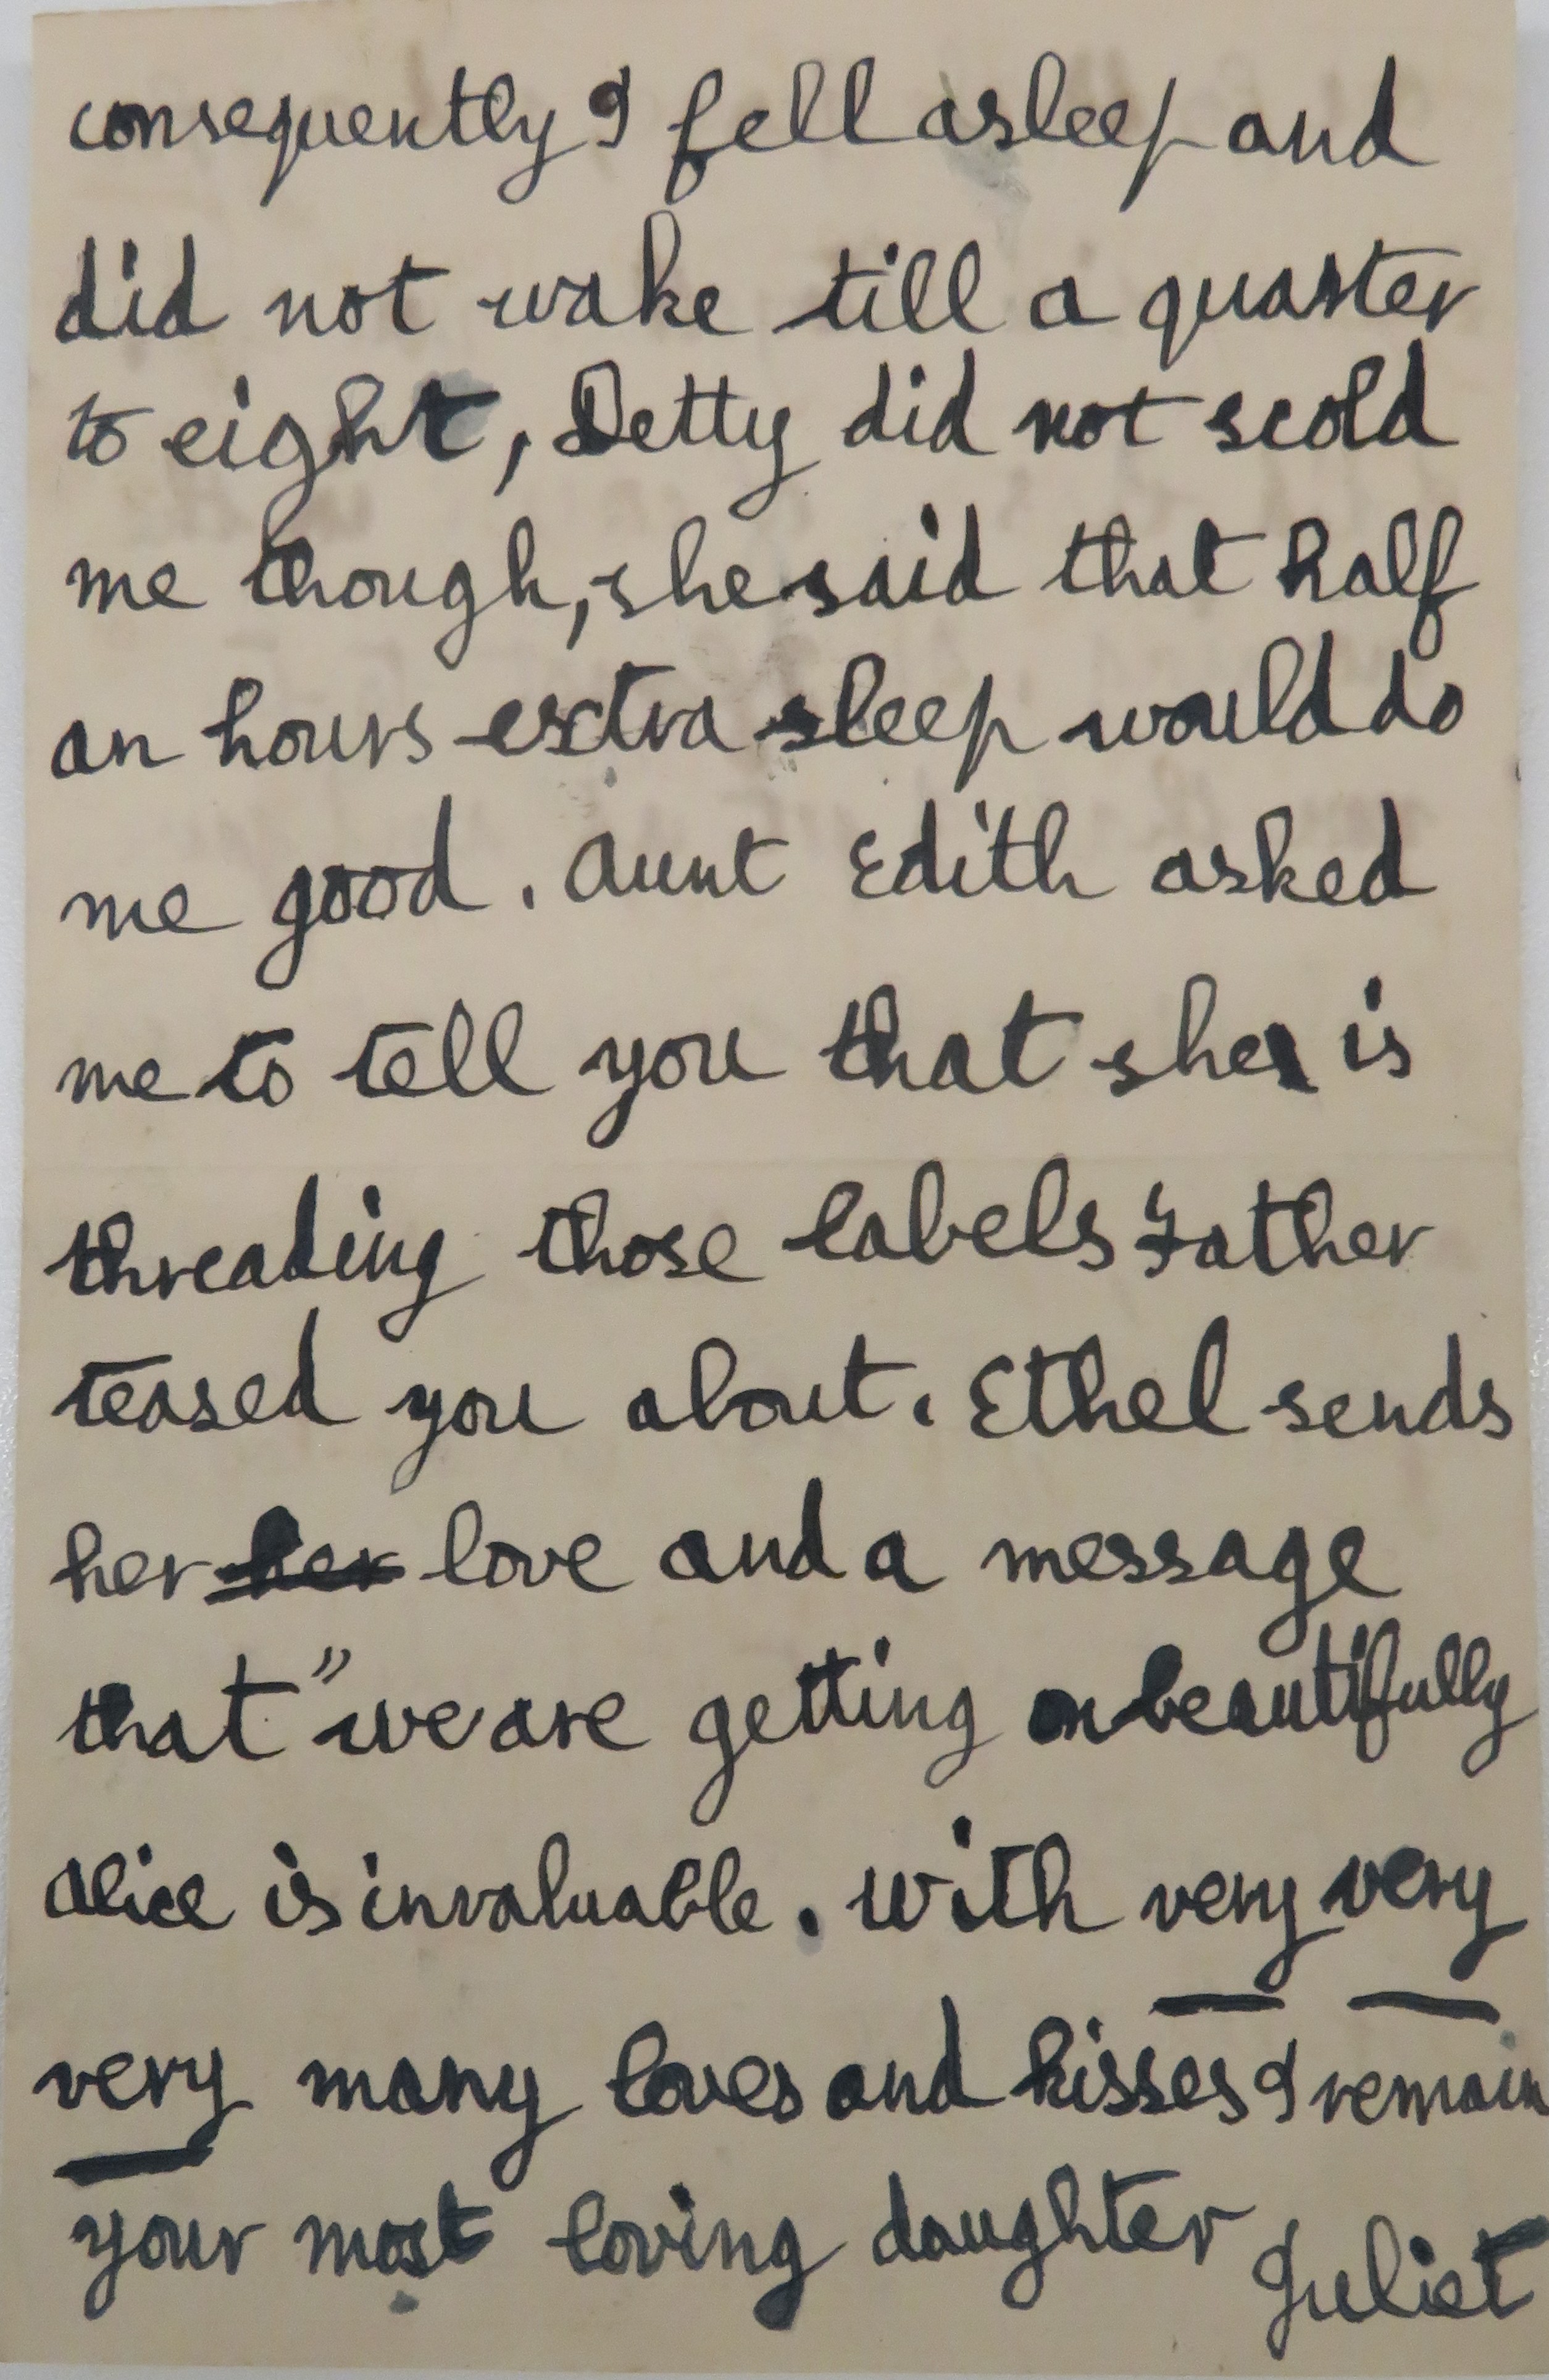 consequently I fell asleep and
did not wake till a quarter
to eight, Detty did not scold
me though, she said that half
an hours extra sleep would do
me good. Aunt Edith asked
me to tell you that she is
threading those labels Father
teased you about. Ethel sends
her her love and a message
that "we are getting on beautifully
Alice is invaluable. With very very
very many loves and kisses I remain
your most loving daughter Juliet